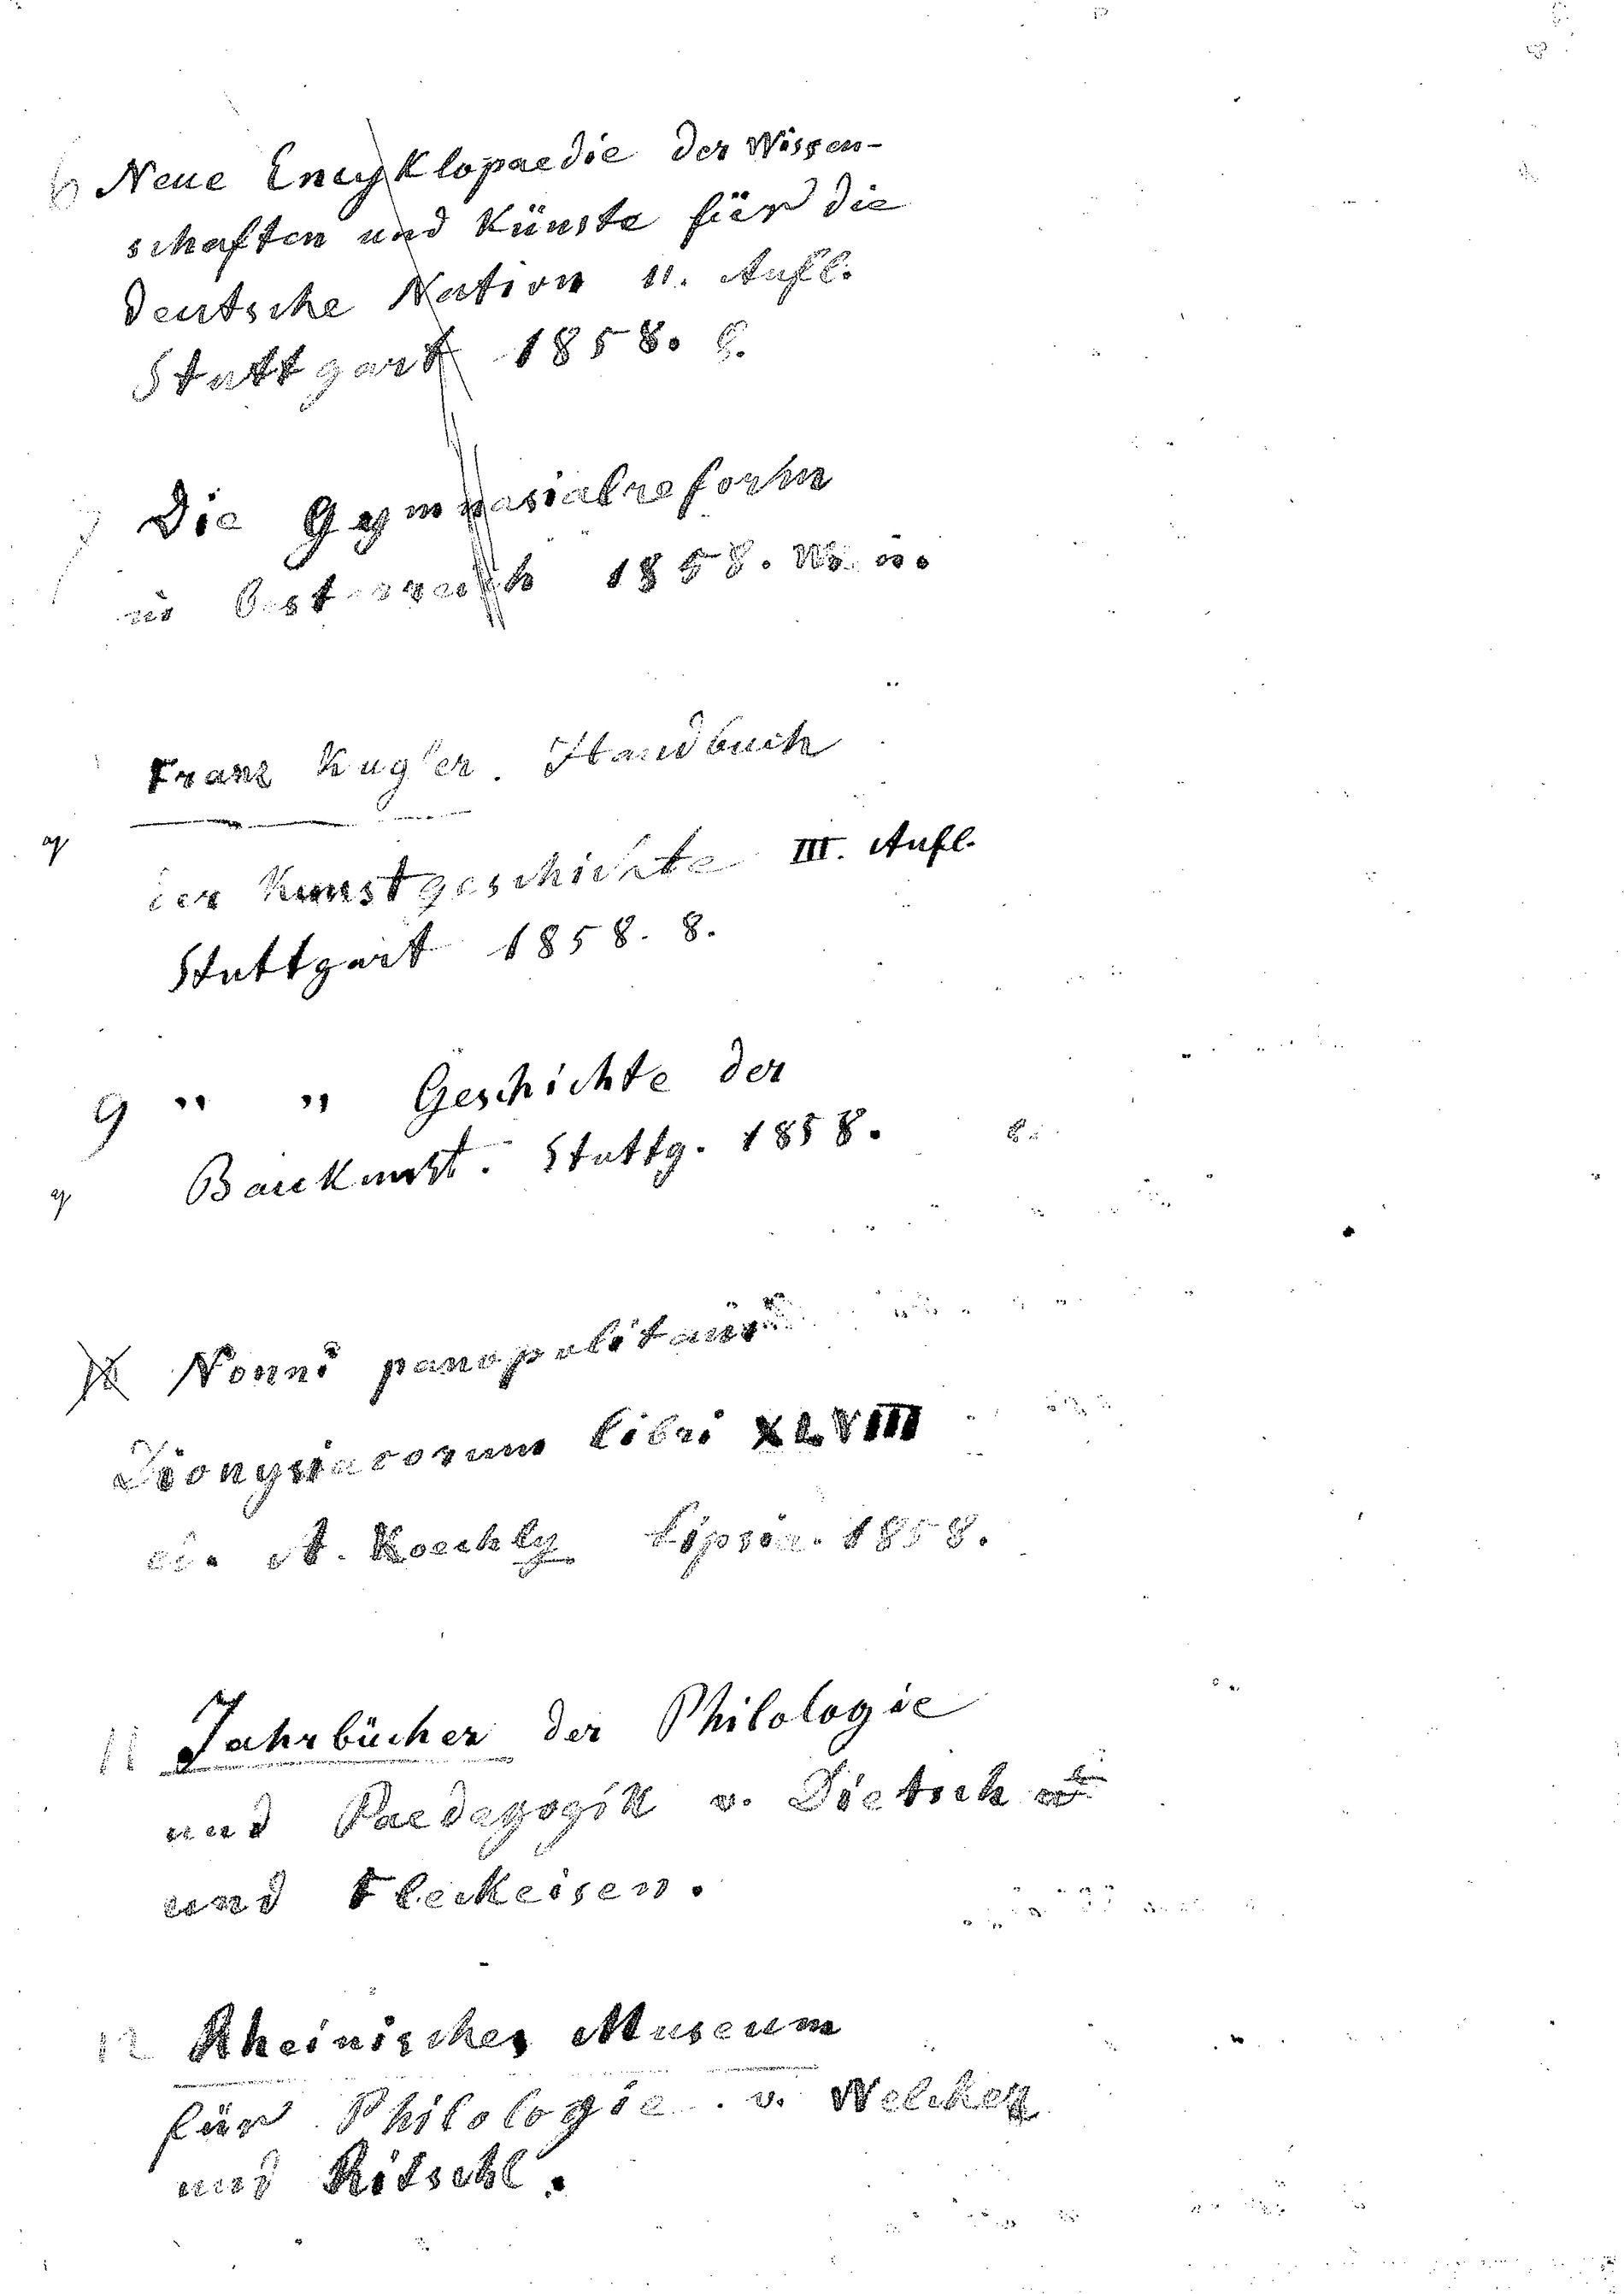 6 Neue Encyklopaedie der Wissen-
schaften und Künste für die
deutsche Nation 11. Aufl.
Stuttgart 1858. 8.
7 Die Gymnasialreform
in Oesterreich 1858. Wien.
Franz Kugler. Handbuch
der Kunstgeschichte III. Aufl.
Stuttgart 1858. 8.
9 " " Geschichte der
Baukunst. Stuttg. 1858. 8.
10 Nonni panopolitani
Dionysiacorum libri XLVIII
ed. A. Koechly Lipsia. 1858.
11 Jahrbücher der Philologie
und Paedagogik v. Dietsch
und Fleckeisen.
12 Rheinisches Museum
für Philologie v. Welcker
und Ritschl.